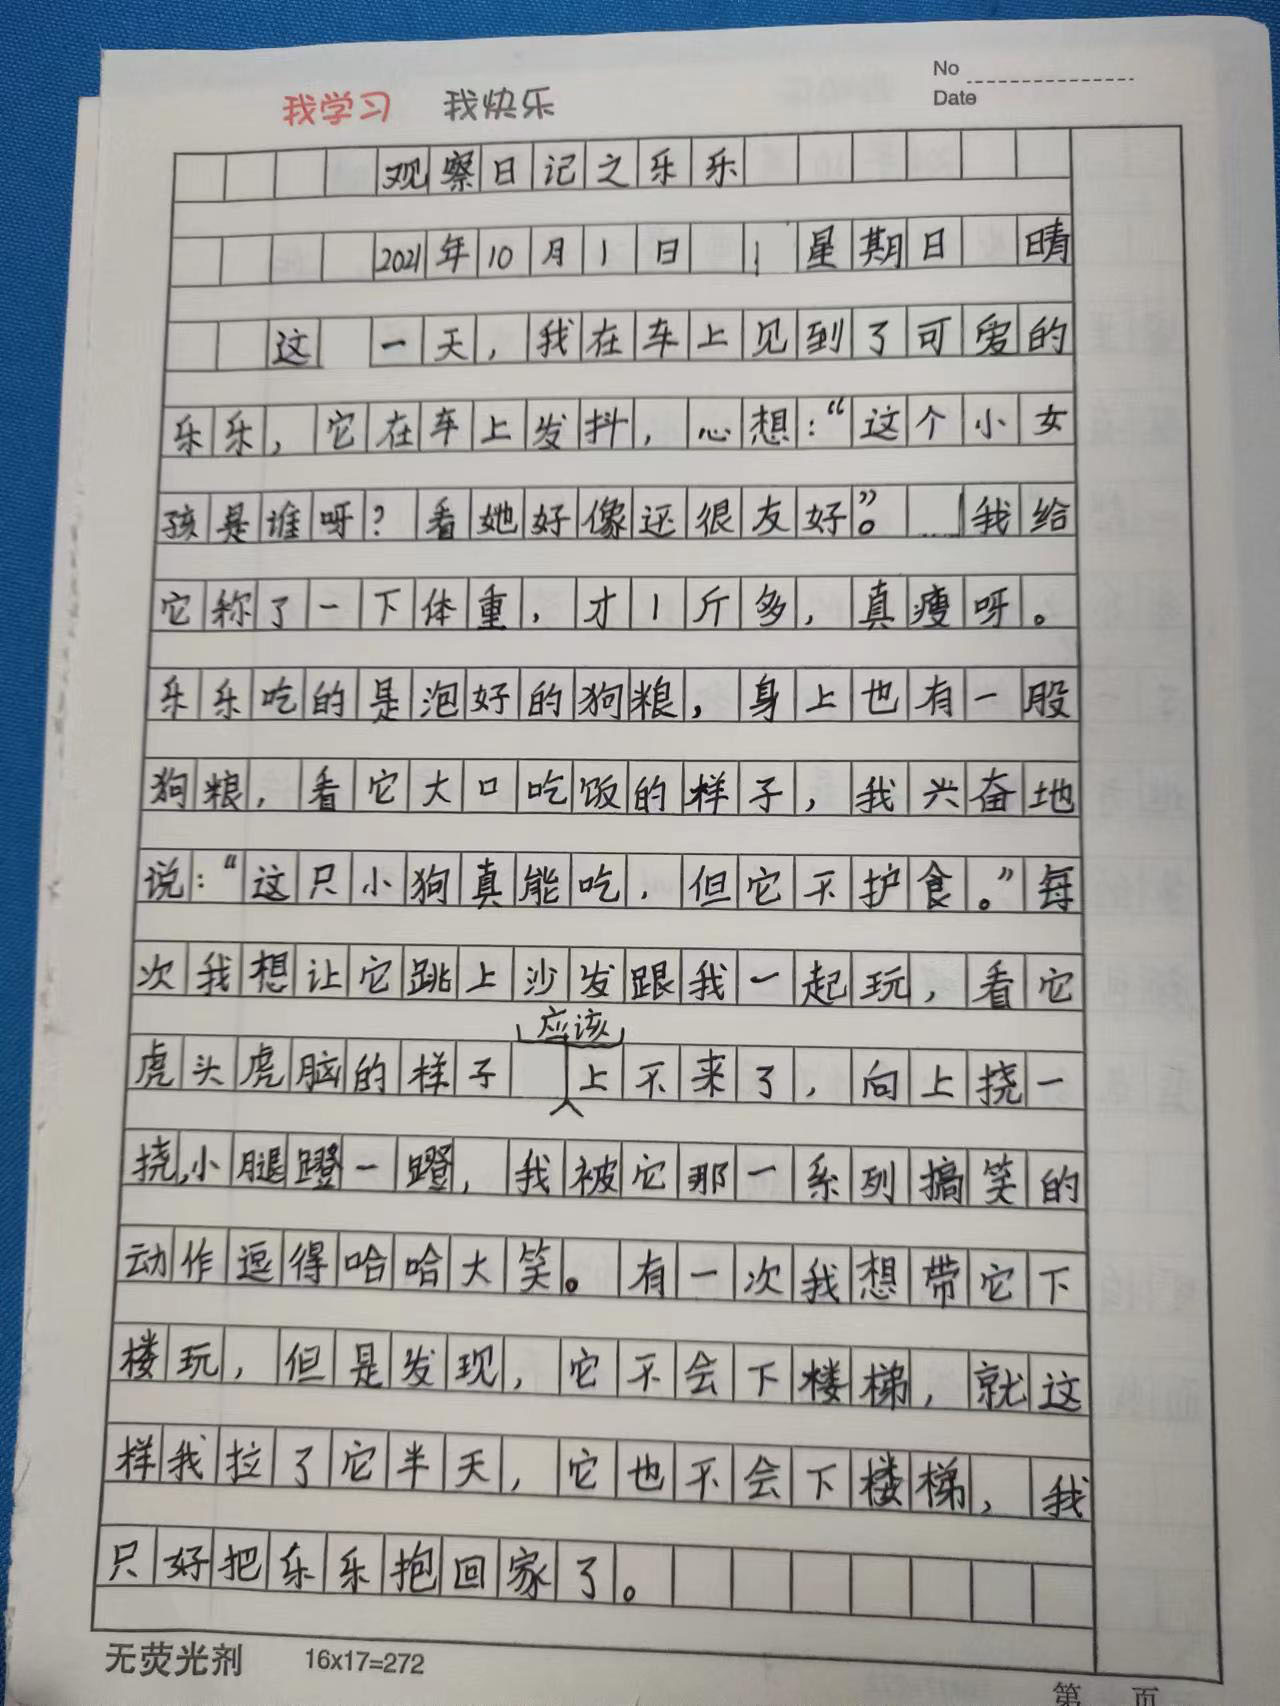 No
Date
我学习 我快乐
观察日记之乐乐
2021年10月1日 星期日 晴
这一天，我在车上见到了可爱的
乐乐，它在车上发抖，心想：“这个小女
孩是谁呀？看她好像还很友好”。我给
它称了一下体重，才1斤多，真瘦呀。
乐乐吃的是泡好的狗粮，身上也有一股
狗粮，看它大口吃饭的样子，我兴奋地
说：“这只小狗真能吃，但它不护食。”每
次我想让它跳上沙发跟我一起玩，看它
虎头虎脑的样子应该上不来了，向上挠一
挠，小腿蹬一蹬，我被它那一系列搞笑的
动作逗得哈哈大笑。有一次我想带它下
楼玩，但是发现，它不会下楼梯，就这
样我拉了它半天，它也不会下楼梯，我
只好把乐乐抱回家了。
无荧光剂 16x17=272
第 页